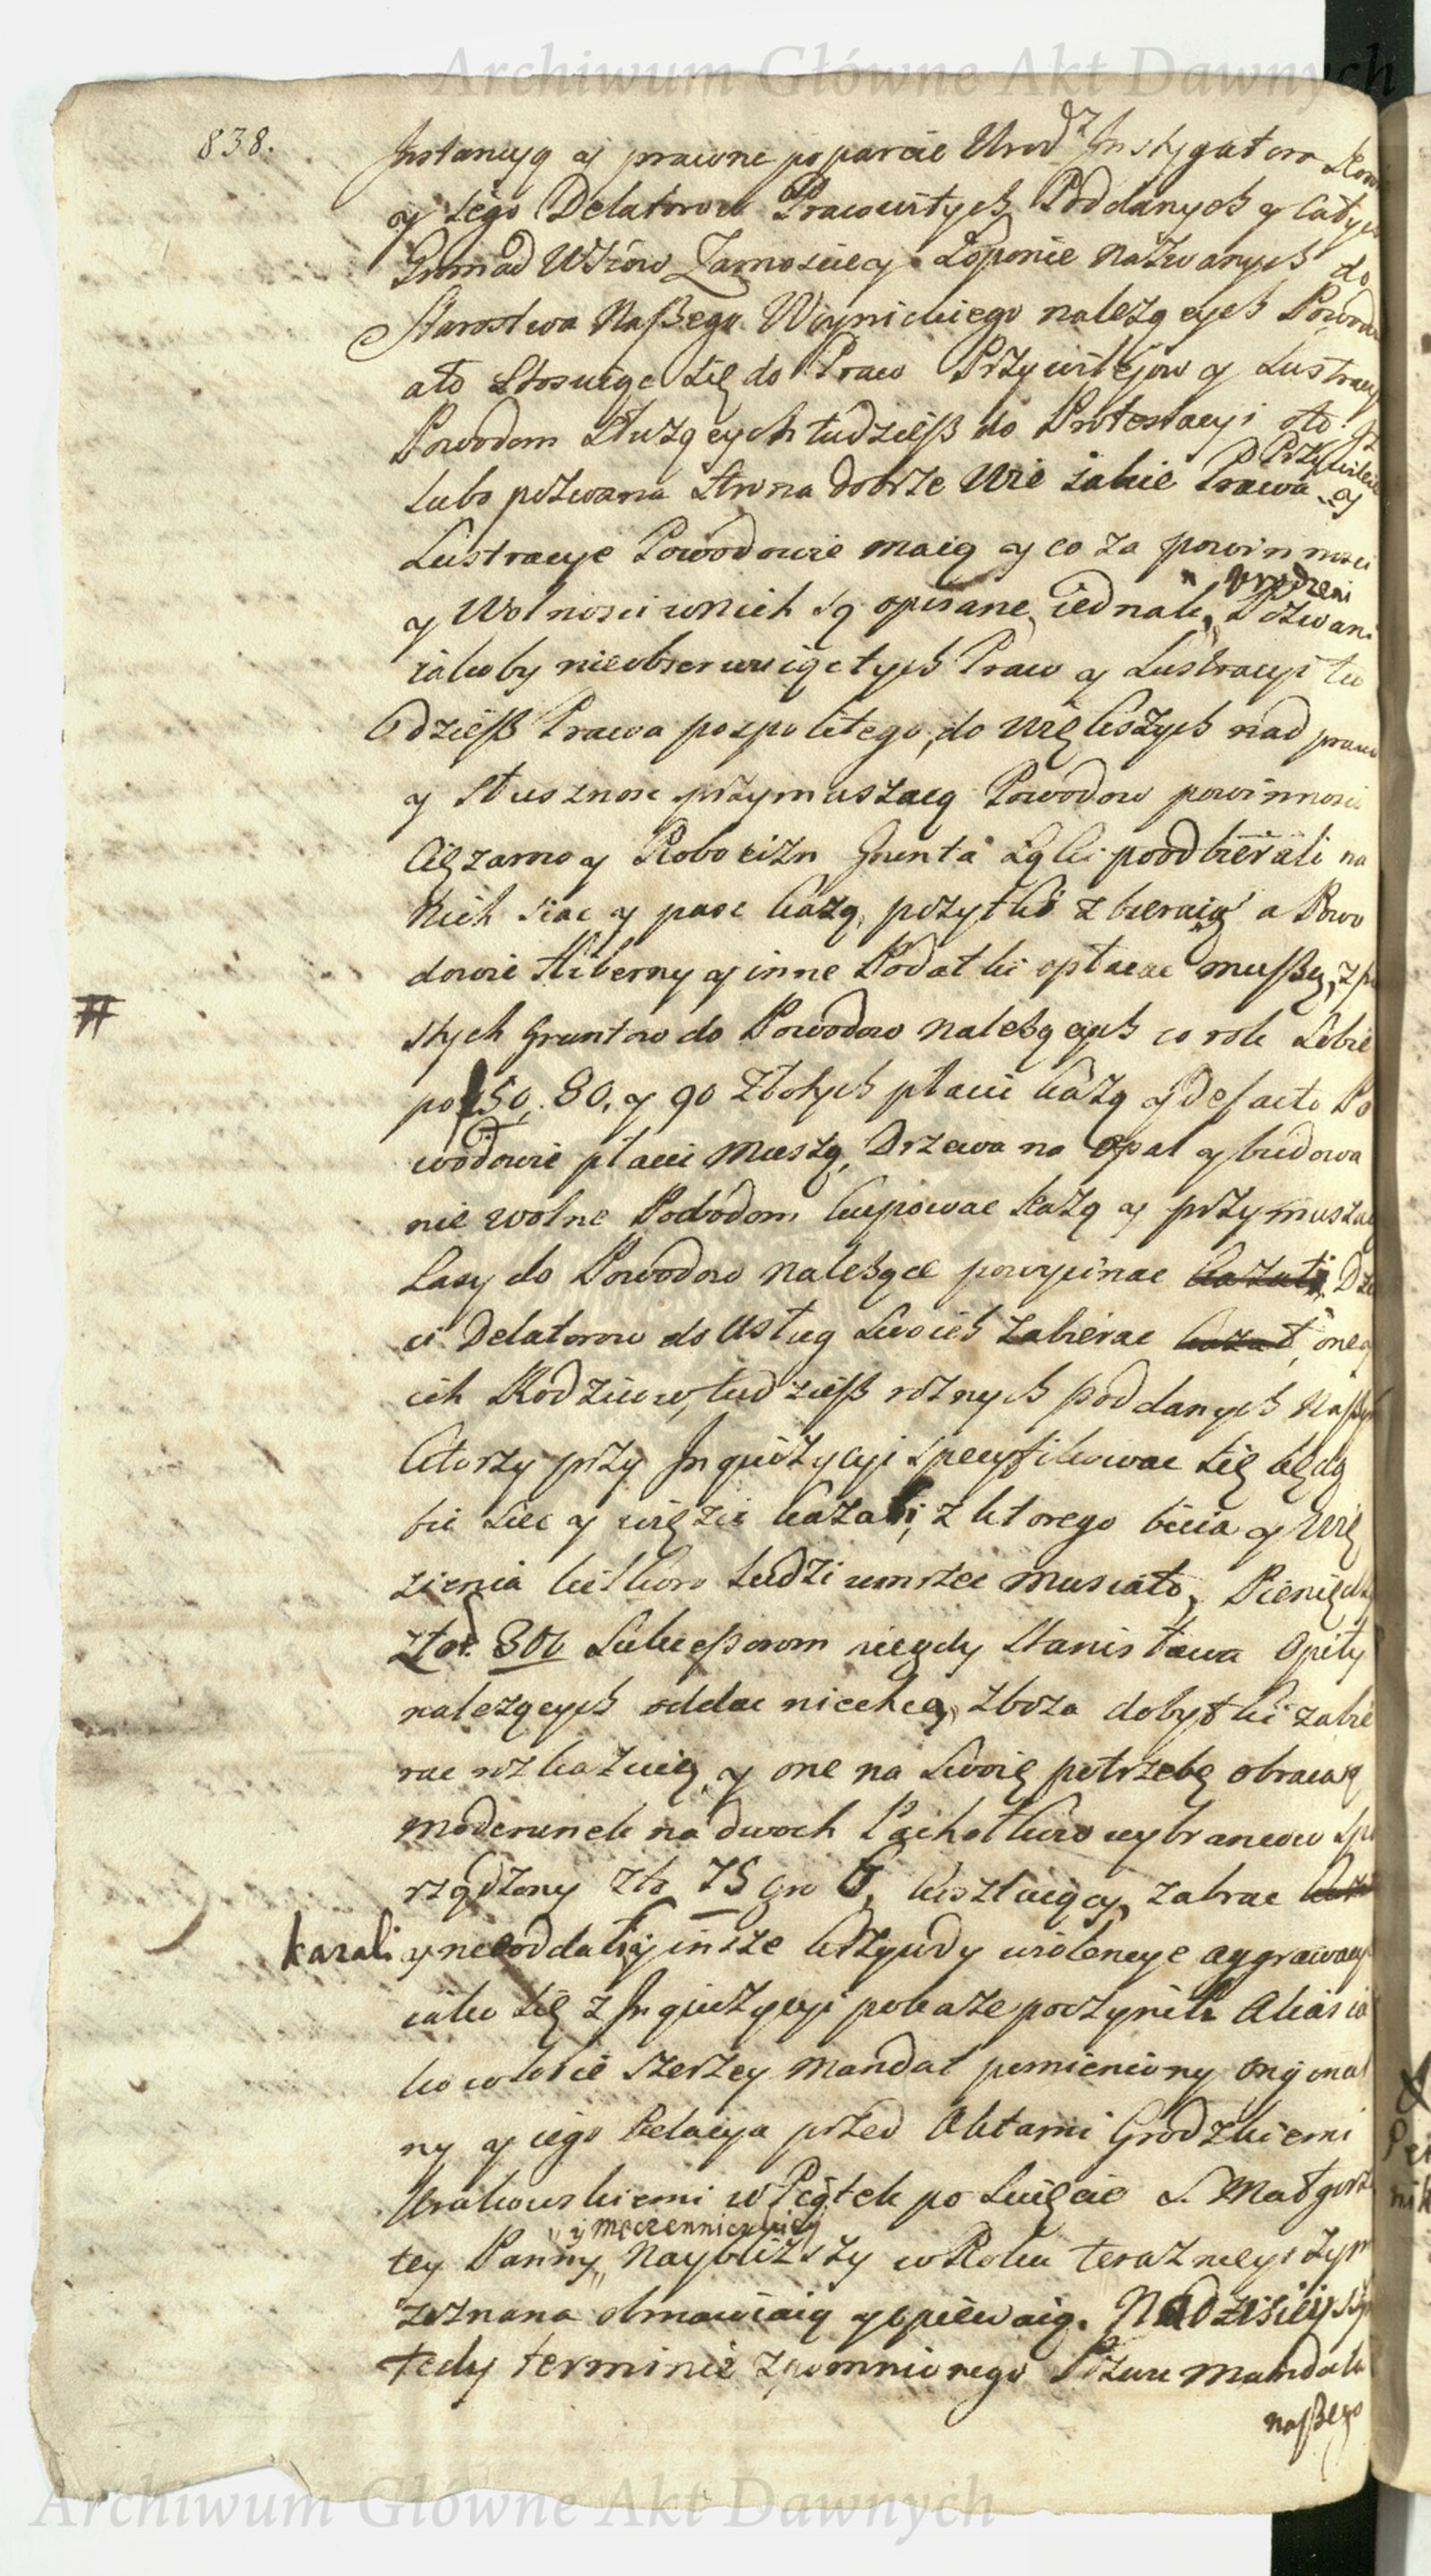 Archiwum Główne Akt Dawnych
838.
Instancyą y prawne poparcie Urodz Instygatora
y Iego Delatorow Pracowitych Poddanych y Całych
Gromad Wsiow Zamoscie y Łoponie nazwanych do
Starostwa Naszego Woynickiego należących Powodow
ato stosuiąc się do Praw Przywileiow y Lustracyi
Powodom służących tudziesz do Protestacyi oto Iż
lubo pozwana strona dobrze wie iakie Prawa Przywileie y
Lustracye Powodowie maią y co za powinnosci
y Wolnosci wnich są opisane, iednak, Urodzeni Pozwani
iakoby nieobserwuiąc tych Praw y Lustracyi tu
dziesz Prawa pospolitego, do większych nad prawo
y słusznosc przymuszaią Powodow powinnosci
Ciężarow y Robocizn Gronta Łąki poodbierali na
Nich siac y pasc każą, pożytki zbieraią a Powo
dowie Hiberny y inne Podatki opłacac muszą, z
stych Gruntow do Powodow należących co rok Sobie
po 50, 80, y 90 Złotych płacic każą y Defacto Po
wodowie płacic muszą, Drzewa na opał y budowa
nie wolne Powodom kupowac każą y przymuszaią
Lasy do Powodow należące powycinac kazali. Dzie
ci Delatorow do usług swoich zabierac kazał, one y
ich Rodzicow, tudziesz roznych poddanych Naszych
ktorzy przy Inquizycyi specyfikowac się będą
bic siec y więzic kazali, z ktorego bicia y Wię
zienia kilkoro ludzi umrzec musiało, Pieniędzy
Złot. 300 Sukcessorom niegdy Stanisława Opiły
należących oddac niechcą, zboża dobytki zabie
rac rozkazuią, y one na swoię potrzebę obracaią
moderunek na dwoch Pachołkow wybrancow spo
rządzony Zło 75 gro 6, kosztuiący, zabrac kazali
kazali y nieoddali y insze krzywdy wiolencye aggrawacye
iako się z Inquizycyi pokaże poczynili Akcis ia
ko wtobie szerzey Mandat pomieniony oryginal
ny y iego Relacya przed Aktami Grodzkiemi
Krakowskiemi w Piątek po Swięcie S. Małgorza
y Męczenniczki
tey Panny, Naybliższy w Roku teraznieyszym
zeznana obmawiaią y opiewaią. Na dzisieyszym
tedy terminie zpomnionego Pozwu mandatu
naszego
Archiwum Główne Akt Dawnych